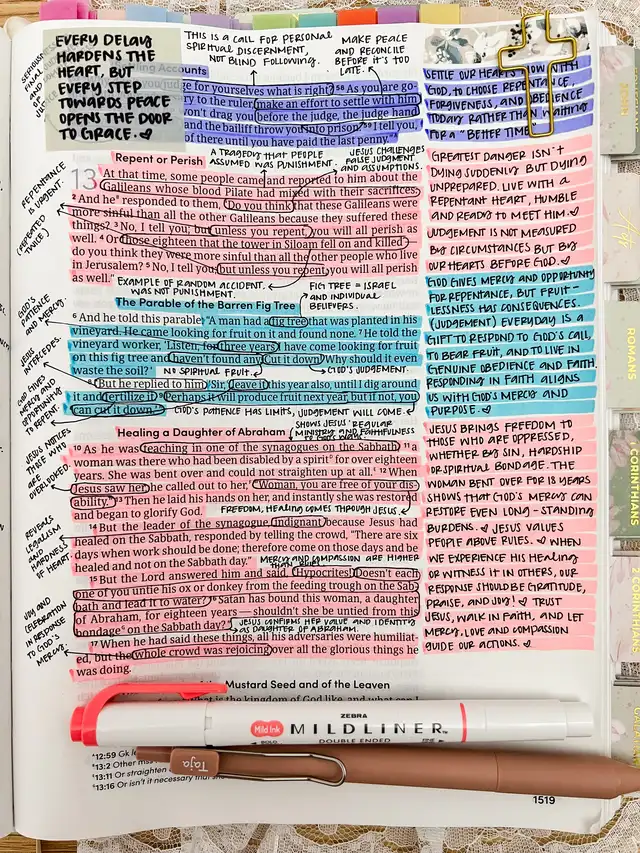 EVERY DELAY
HARDENS THE
HEART, BUT
EVERY STEP
TOWARDS PEACE
OPENS THE DOOR
TO GRACE.
THIS IS A CALL FOR PERSONAL
SPIRITUAL DISCERNMENT,
NOT BLIND FOLLOWING.
MAKE PEACE
AND RECONCILE
BEFORE IT'S TOO
LATE.
Accounts
judge for yourselves what is right? 58 As you are go-
ry to the ruler, make an effort to settle with him
won't drag you before the judge, the judge hand
and the bailiff throw you into prison. 59 I tell you,
of there until you have paid the last penny."
SETTLE OUR HEARTS NOW WITH
GOD, TO CHOOSE REPENTANCE,
FORGIVENESS, AND OBEDIENCE
TODAY RATHER THAN WAITING
FOR A "BETTER TIME"
Repent or Perish
A TRAGEDY THAT PEOPLE
ASSUMED WAS PUNISHMENT.
JESUS CHALLENGES
FALSE JUDGMENT
AND ASSUMPTIONS
13 At that time, some people came and reported to him about the
Galileans whose blood Pilate had mixed with their sacrifices.
2 And he responded to them, "Do you think that these Galileans were
more sinful than all the other Galileans because they suffered these
things? 3 No, I tell you; but unless you repent, you will all perish as
well. 4 Or those eighteen that the tower in Siloam fell on and killed—
do you think they were more sinful than all the other people who live
in Jerusalem? 5 No, I tell you; but unless you repent, you will all perish
as well."
EXAMPLE OF RANDOM ACCIDENT.
WAS NOT PUNISHMENT.
FIG TREE = ISRAEL
AND INDIVIDUAL
BELIEVERS.
REPENTANCE
IS URGENT.
(REPEATED
TWICE)
GREATEST DANGER ISN'T
DYING SUDDENLY BUT DYING
UNPREPARED. LIVE WITH A
REPENTANT HEART, HUMBLE
AND READY TO MEET HIM.
JUDGEMENT IS NOT MEASURED
BY CIRCUMSTANCES BUT BY
OUR HEARTS BEFORE GOD.
The Parable of the Barren Fig Tree
6 And he told this parable: "A man had a fig tree that was planted in his
vineyard. He came looking for fruit on it and found none. 7 He told the
vineyard worker, 'Listen, for three years I have come looking for fruit
on this fig tree and haven't found any. Cut it down! Why should it even
waste the soil?'
NO SPIRITUAL FRUIT.
GOD'S JUDGEMENT.
8 "But he replied to him, 'Sir, leave it this year also, until I dig around
it and fertilize it. 9 Perhaps it will produce fruit next year, but if not, you
can cut it down.'"
GOD'S PATIENCE HAS LIMITS, JUDGEMENT WILL COME.
GOD'S
PATIENCE
AND MERCY.
JESUS
INTERCEDES.
GOD GIVES
MERCY AND
OPPORTUNITIES
TO REPENT.
GOD GIVES MERCY AND OPPORTUNITY
FOR REPENTANCE, BUT FRUIT-
LESSNESS HAS CONSEQUENCES.
(JUDGEMENT) EVERYDAY IS A
GIFT TO RESPOND TO GOD'S CALL,
TO BEAR FRUIT, AND TO LIVE IN
GENUINE OBEDIENCE AND FAITH.
RESPONDING IN FAITH ALIGNS
US WITH GOD'S MERCY AND
PURPOSE.
Healing a Daughter of Abraham
SHOWS JESUS' REGULAR
MINISTRY AND FAITHFULNESS
10 As he was teaching in one of the synagogues on the Sabbath, 11 a
woman was there who had been disabled by a spirit for over eighteen
years. She was bent over and could not straighten up at all. 12 When
Jesus saw her, he called out to her, "Woman, you are free of your dis-
ability." 13 Then he laid his hands on her, and instantly she was restored
and began to glorify God.
FREEDOM, HEALING COMES THROUGH JESUS.
14 But the leader of the synagogue, indignant because Jesus had
healed on the Sabbath, responded by telling the crowd, "There are six
days when work should be done; therefore come on those days and be
healed and not on the Sabbath day."
MERCY AND COMPASSION ARE HIGHER
15 But the Lord answered him and said, "Hypocrites! Doesn't each
one of you untie his ox or donkey from the feeding trough on the Sab-
bath and lead it to water? 16 Satan has bound this woman, a daughter
of Abraham, for eighteen years—shouldn't she be untied from this
bondage on the Sabbath day?"
JESUS CONFIRMS HER VALUE AND IDENTITY
AS DAUGHTER OF ABRAHAM.
17 When he had said these things, all his adversaries were humiliat-
ed, but the whole crowd was rejoicing over all the glorious things he
was doing.
JESUS NOTICES
THOSE WHO
ARE
OVERLOOKED.
REVEALS
LEGALISM
AND
HARDNESS
OF HEART.
JOY AND
CELEBRATION
IN RESPONSE
TO GOD'S
MERCY.
JESUS BRINGS FREEDOM TO
THOSE WHO ARE OPPRESSED,
WHETHER BY SIN, HARDSHIP
OR SPIRITUAL BONDAGE. THE
WOMAN BENT OVER FOR 18 YEARS
SHOWS THAT GOD'S MERCY CAN
RESTORE EVEN LONG-STANDING
BURDENS. JESUS VALUES
PEOPLE ABOVE RULES. WHEN
WE EXPERIENCE HIS HEALING
OR WITNESS IT IN OTHERS, OUR
RESPONSE SHOULD BE GRATITUDE,
PRAISE, AND JOY! TRUST
JESUS, WALK IN FAITH, AND LET
MERCY, LOVE AND COMPASSION
GUIDE OUR ACTIONS.
Mustard Seed and of the Leaven
Mild Ink
ZEBRA
MILDLINER
DOUBLE ENDED
Taja
12:59 Gk
13:2 Other
13:11 Or straighten
13:16 Or isn't it necessary that
1519
JOHN
ROMANS
CORINTHIANS